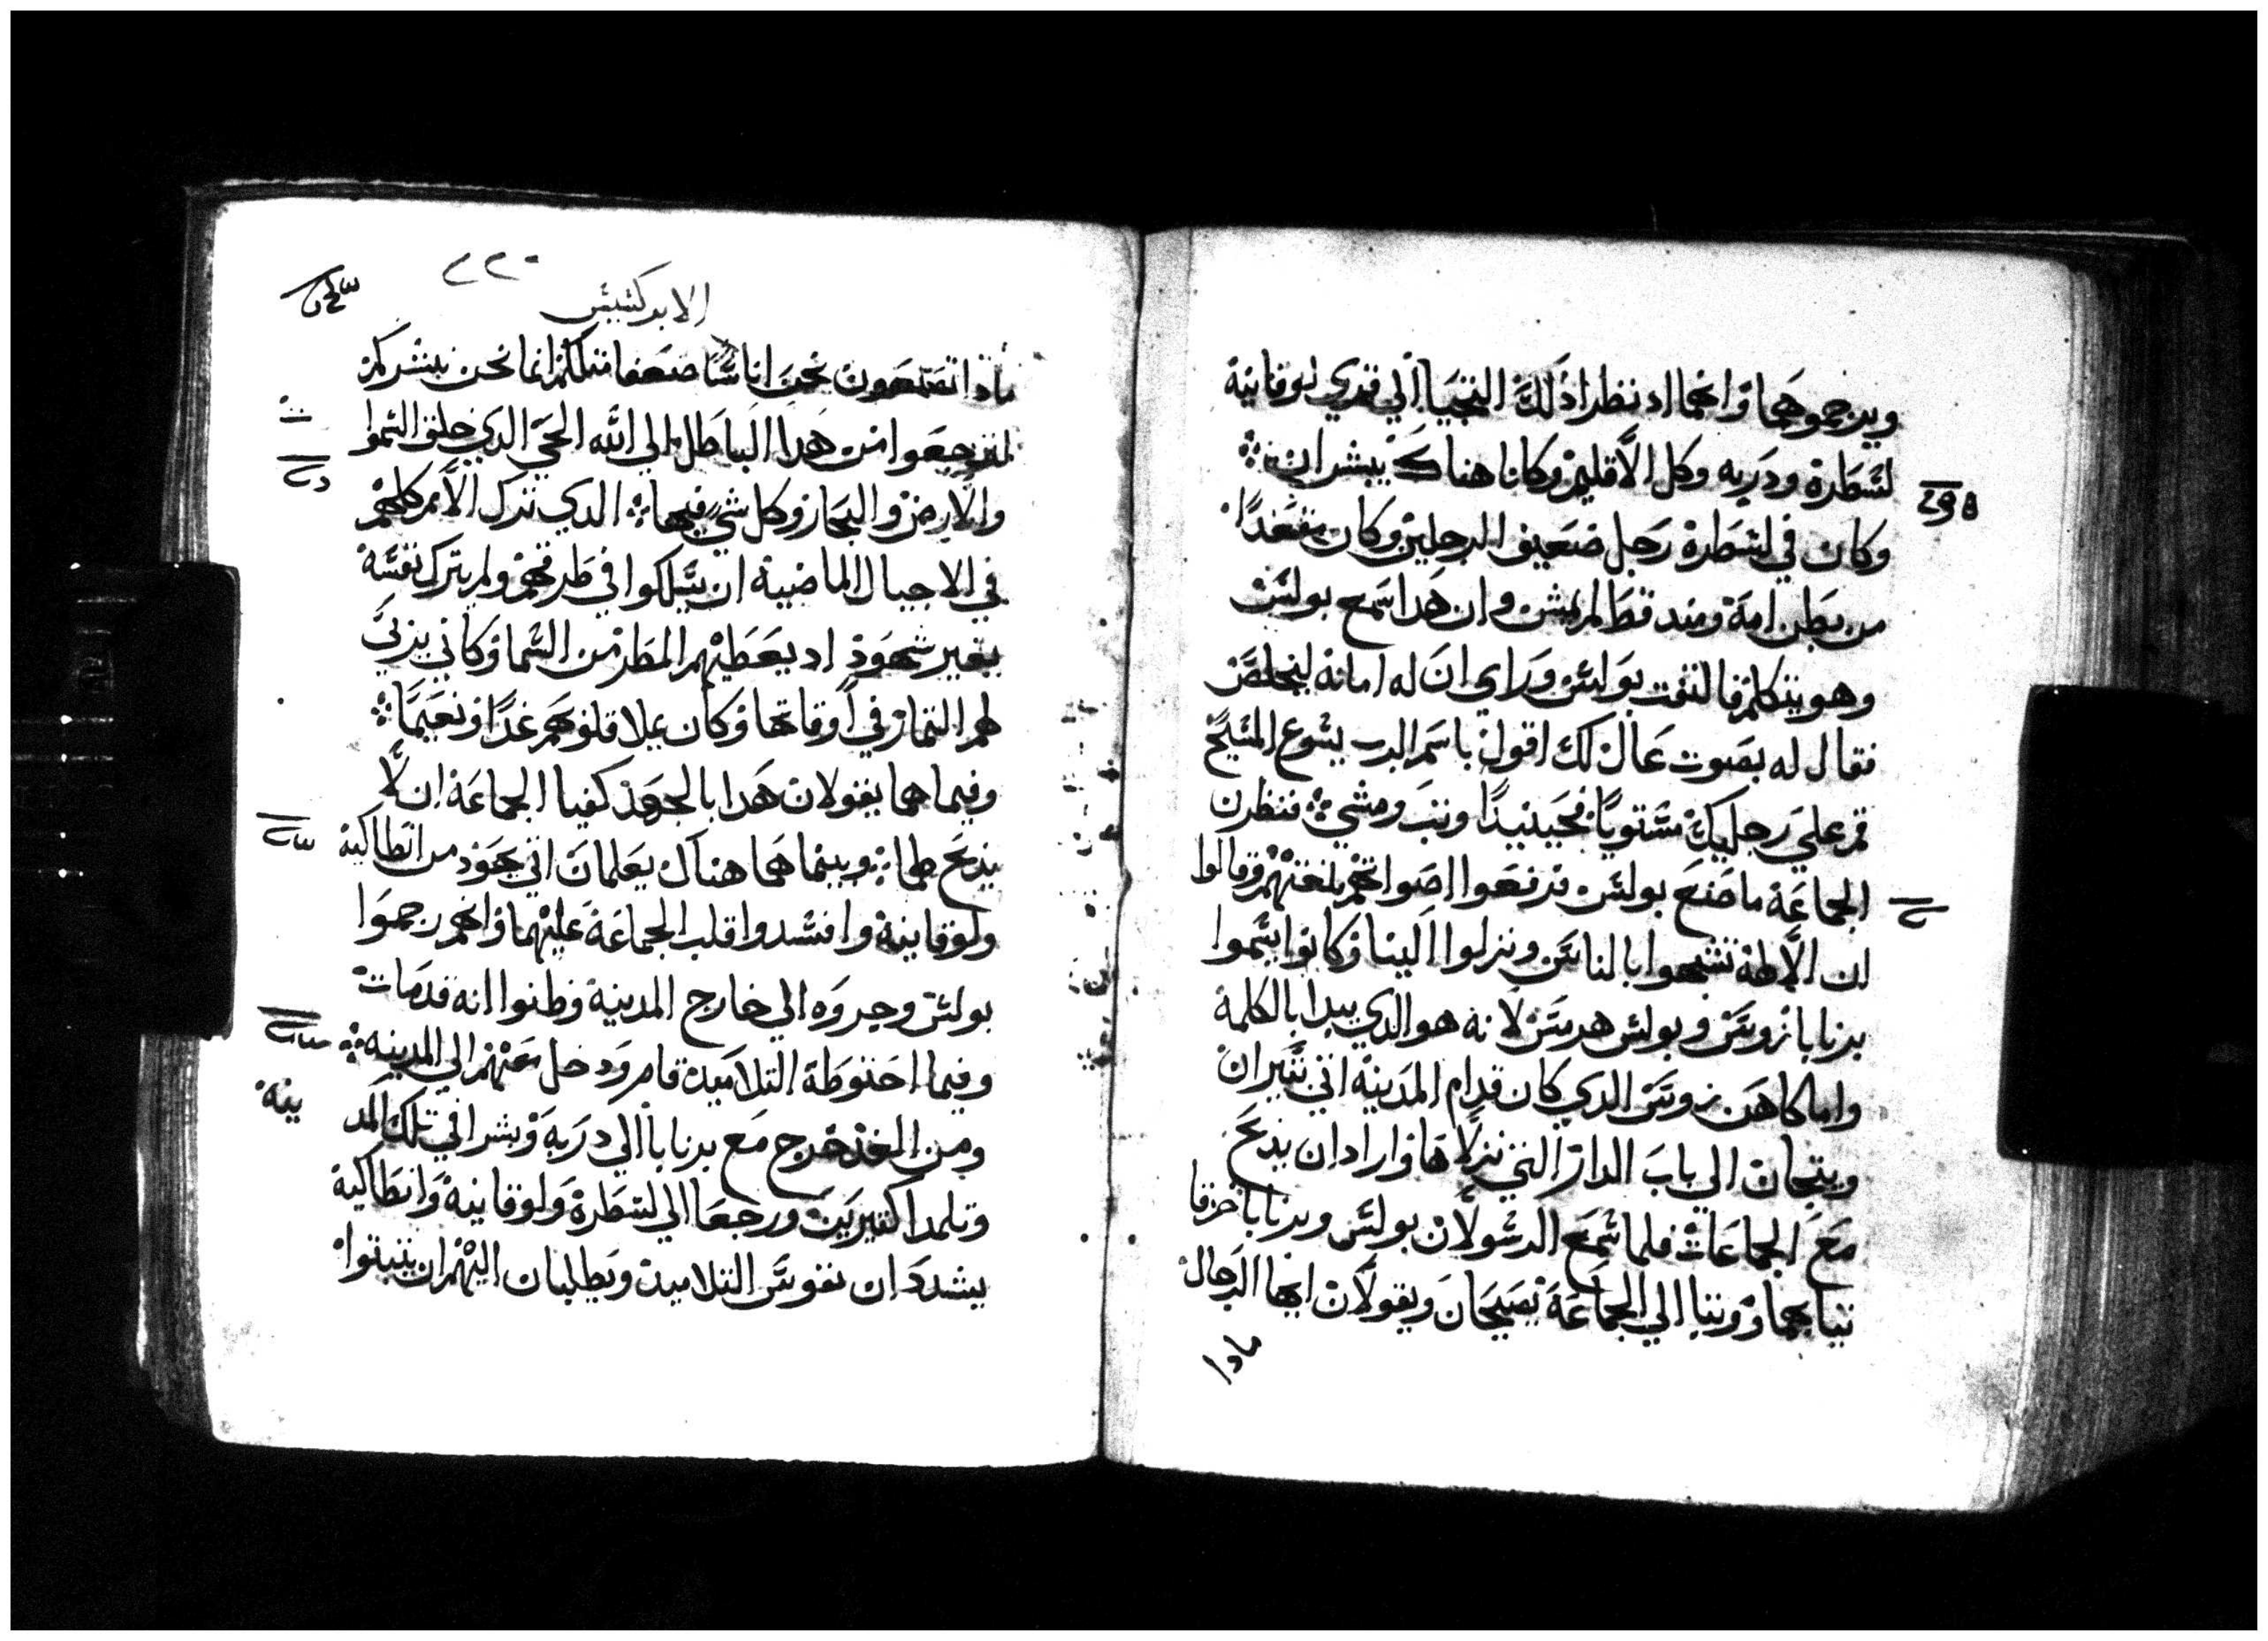 ويرجموهما وانهما اد نظرا ذلك التجيا الي قري لوقانية
لسطرة ودربه وكل الاقليم وكانا هناك يبشران
وكان في لسطرة رجل ضعيف الرجلين وكان مقعدا
من بطن امة ومند قط لم يمش وان هدا سمع بولس
وهو يتكلم فالتفت بولس وراي ان له امانة ليخلص
فقال له بصوت عال لك اقول باسم الرب يسوع المسيح
قم علي رجليك مستويا فحينيدا وتب ومشي فنظرن
الجماعة ما صنع بولس فرفعوا اصواتهم بلغتهم وقالوا
ان الالهة تشبهوا بالناس ونزلوا الينا وكانوا يسموا
برنابا زوس وبولس هرمس لانه هو الدي يبدا بالكلمة
واما كاهن زوس الدي كان قدام المدينة اتي بثيران
وبتيجان الي باب الدار التي نزلاها واراد ان يدبح
مع الجماعات فلما سمع الرسولان بولس وبرنابا خرقا
تيابهما ووتبا الي الجماعة يصيحان ويقولان ايها الرجال
مادا
٢٢٠
الابركسيس
مادا تصنعون نحن اناسا ضعفا متلكم انما نحن نبشركم
لترجعوا من هدا الباطل الي الله الحي الدي خلق السموات
والارض والبحار وكل شي فيها الدي ترك الامم كلهم
في الاجيال الماضية ان يسلكوا في طرقهم ولم يترك نفسه
بغير شهود اد يعطيهم المطر من السما وكان يربي
لهم التمار في اوقاتها وكان يملا قلوبهم غدا ونعيما
وفيما هما يقولان هدا بالجهد كفيا الجماعة ان لا
يدبح لهما وبينما هما هناك يعلمان اتي يهود من انطاكية
ولوقانية وافسدوا قلب الجماعة عليهما وانهم رجموا
بولس وجروه الي خارج المدينة وظنوا انه قد مات
وفيما احتوطة التلاميد قام ودخل معهم الي المدينه
ومن الغد خرج مع برنابا الي دربه وبشرا في تلك المدينة
وتلمدا كتيرين ورجعا الي لسطرة ولوقانية وانطاكية
يشددان نفوس التلاميد ويطلبان اليهم ان يتبتوا